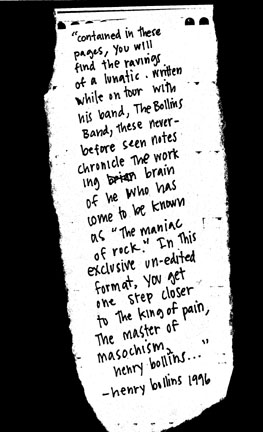 "contained in these
pages, you will
find the ravings
of a lunatic. written
while on tour with
his band, The Bollins
Band, these never-
before seen notes
chronicle the work
ing brian brain
of he who has
come to be known
as "The maniac
of rock." In this
exclusive un-edited
format, you get
one step closer
to The king of pain,
The master of
masochism,
henry bollins..."
-henry bollins 1996